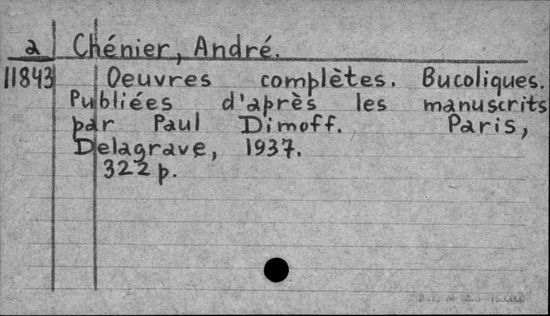 a Chénier, André.
11843 Oeuvres complètes. Bucoliques.
Publiées d'après les manuscrits
par Paul Dimoff. Paris,
Delagrave, 1937.
322 p.